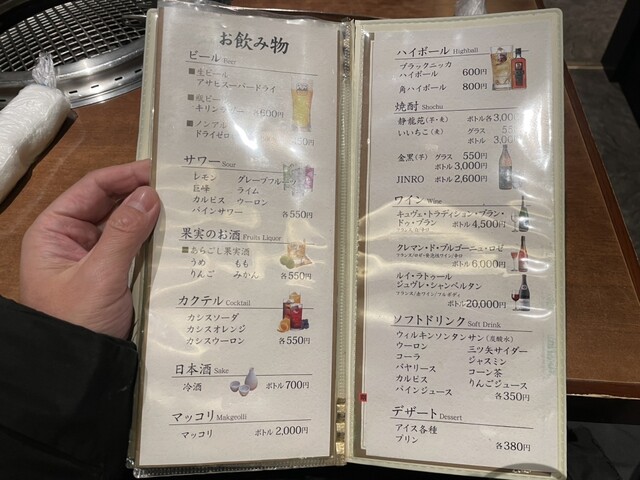 お飲み物
ビール Beer
■生ビール
アサヒスーパードライ
■瓶ビール
キリンラガー 各600円
■ノンアル
ドライゼロ
サワー Sour
レモン グレープフルーツ
巨峰 ライム
カルピス ウーロン
パインサワー 各550円
果実のお酒 Fruits Liquor
■あらごし果実酒
うめ もも
りんご みかん 各550円
カクテル Cocktail
カシスソーダ
カシスオレンジ
カシスウーロン 各550円
日本酒 Sake
冷酒 ボトル 700円
マッコリ Makgeolli
マッコリ ボトル 2,000円
ハイボール Highball
ブラックニッカ
ハイボール 600円
角ハイボール 800円
焼酎 Shochu
静龍苑(芋・麦) ボトル各3,00
いいちこ(麦) グラス
ボトル 3,00
金黒(芋) グラス 550円
ボトル 3,000円
JINRO ボトル 2,600円
ワイン Wine
キュヴェ・トラディション・ブラン・
ドゥ・ブラン ボトル 4,500円
クレマン・ド・ブルゴーニュ・ロゼ
ボトル 6,000円
ルイ・ラトゥール
ジュヴレ・シャンベルタン
フランス/赤ワイン/フルボディ
ボトル 20,000円
ソフトドリンク Soft Drink
ウィルキンソンタンサン(炭酸水)
ウーロン 三ツ矢サイダー
コーラ ジャスミン
バヤリース コーン茶
カルピス りんごジュース
パインジュース 各350円
デザート Dessert
アイス各種
プリン 各380円